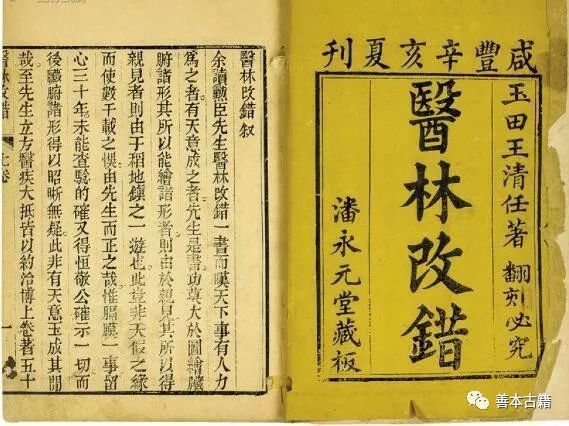 咸豐辛亥夏刊
玉田王清任著 翻刻必究
醫林改錯
潘永元堂藏板
醫林改錯叙
余讀勲臣先生醫林改錯一書而嘆天下事有人力
爲之者有天意成之者先生是書功莫大於圖繪臟
腑諸形其所以能繪諸形者則由於親見其所以得
親見者則由于稻地鎮之一遊也此豈非天假之緣
而使數千載之悞由先生而正之哉惟膈膜一事留
心三十年未能查騐的確又得恒敬公確示一切而
後臟腑諸形得以昭晰無疑此非有天意玉成其間
哉至先生立方醫疾大抵皆以約治博上卷著五十
醫林改錯 上卷 一
善本古籍